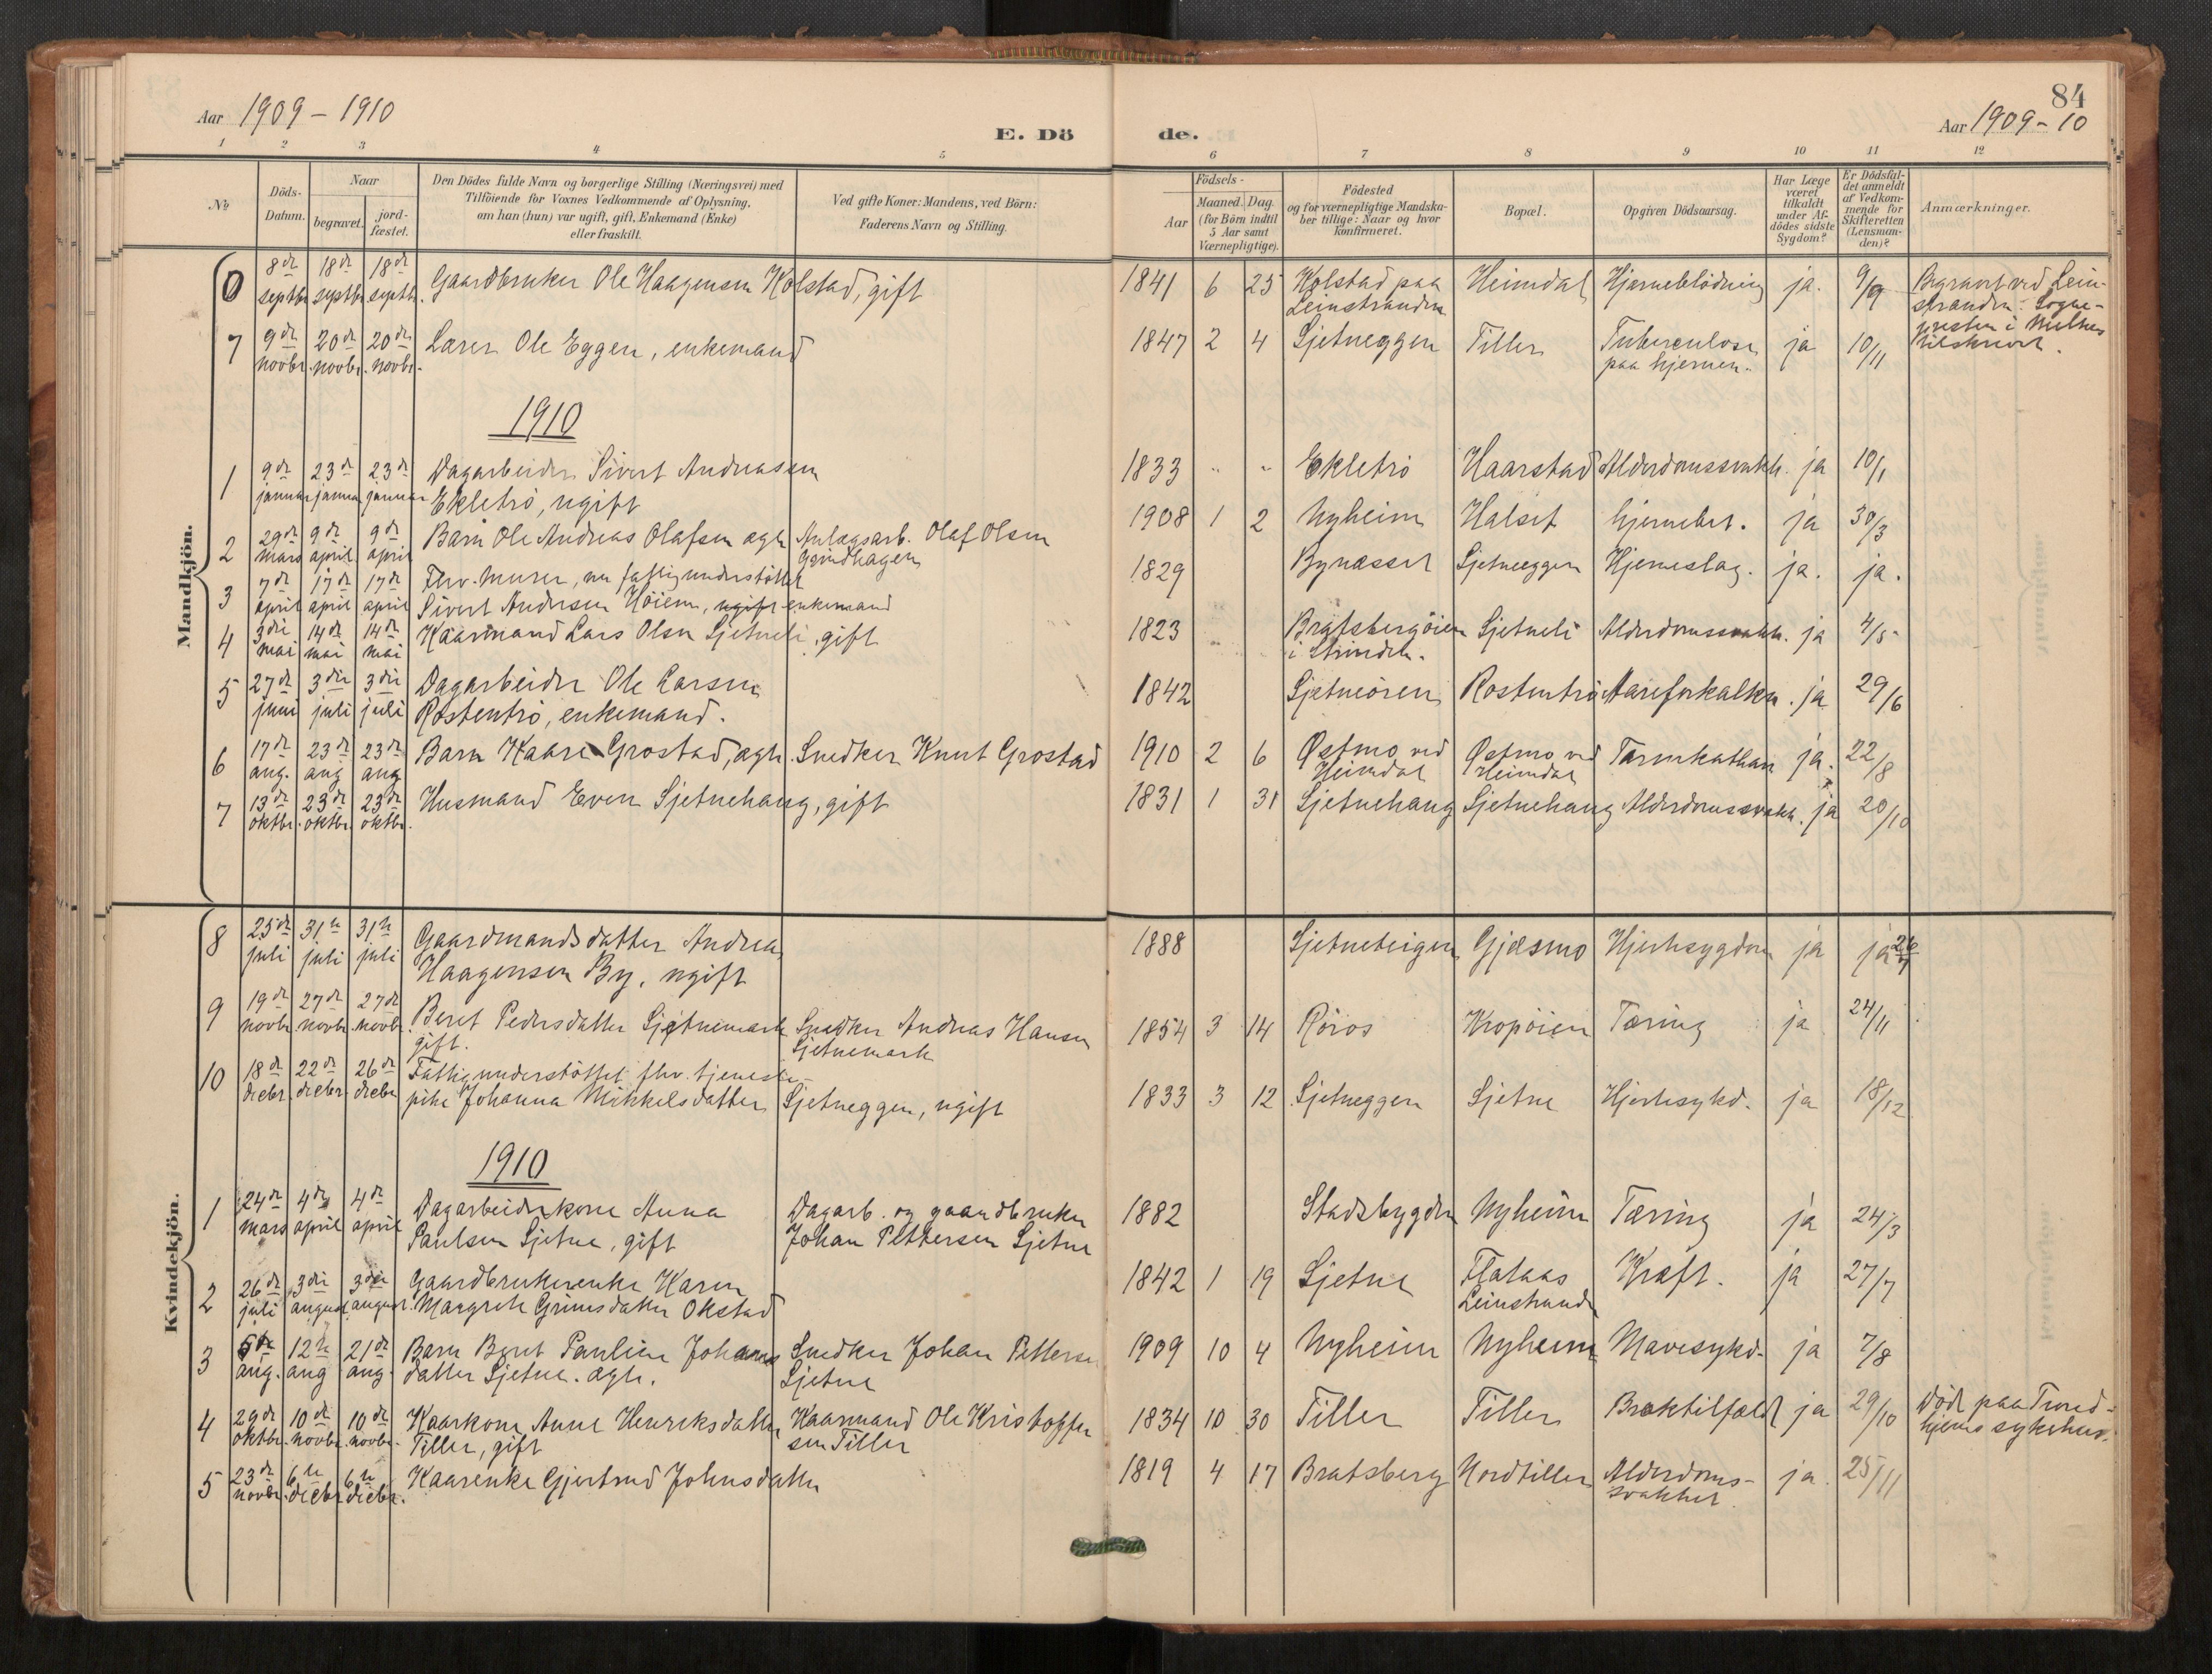 84
Aar 1909 - 1910
E. Dö de.
Aar 1909 - 10
1 2 3 4 5 6 7 8 9 10 11 12
No
Döds-Datum.
Naar
begravet.
jord-fæstet.
Den Dödes fulde Navn og borgerlige Stilling (Næringsvei) med
Tilföiende for Voxnes Vedkommende af Oplysning,
om han (hun) var ugift, gift, Enkemand (Enke)
eller fraskilt.
Ved gifte Koner: Mandens, ved Börn:
Faderens Navn og Stilling.
Födsels-
Aar
Maaned. Dag.
(for Börn indtil
5 Aar samt
Værnepligtige).
Födested
og for værnepligtige Mandska-
ber tillige: Naar og hvor
konfirmeret.
Bopæl.
Opgiven Dödsaarsag.
Har Læge
været
tilkaldt
under Af-
dödes sidste
Sygdom?
Er Dödsfal-
det anmeldt
af Vedkom-
mende for
Skifteretten
(Lensman-
den)?
Anmærkninger.
Mandkjön.
8de septbr 18de septbr 18de septb. Gaardbruker Ole Haagensen Kolstad, gift 1841 6 25 Kolstad paa Leinstranden Heimdal Hjerneblödning ja. 9/9 Begravet ved Lein-
stranden. Sogne-
presten i Melhus
tilskrevet.
7 9de novbr. 20de novbr. 20de novbr. Lærer Ole Eggen, enkemand 1847 2 4 Sjetneggen Tiller Tuberculose paa hjernen. ja 10/11
1910
1 9de januar 23de januar 23de januar Dagarbeider Sivert Andreassen
Ekletrö, ugift 1833 " " Ekletrö Haarstad Alderdomssvakh. ja 10/1
2 29de mars 9de april 9de april Barn Ole Andreas Olafsen ægte Anlægsarb. Olaf Olsen
Grindhagen 1908 1 2 Nyheim Halset hjernebet. ja 30/3
3 7de april 17de april 17de april Fhv. murer, nu fattigunderstöttet
Sivert Andersen Höiem, ugift enkemand 1829 Bynesset Sjetneeggen Hjerneslag. ja. ja.
4 3die mai 14de mai 14de mai Kaarmand Lars Olsen Sjetneli, gift 1823 Bratsbergöien i Strinden. Sjetneli Alderdomssvakh. ja 4/5
5 27de juni 3die juli 3die juli Dagarbeider Ole Larsen
Rostentrö, enkemand. 1842 Sjetneören Rostentrö Aareforkalkn. ja 29/6
6 17de aug. 23de aug 23de aug Barn Kaare Grostad, ægte. Snedker Knut Grostad 1910 2 6 Östmo ved Heimdal Östmo ved Heimdal Tarmkathar ja. 22/8
7 13de oktbr. 23de oktbr. 23de oktbr. Husmand Even Sjetnehaug, gift 1831 1 31 Sjetnehaug Sjetnehaug Alderdomssvakh. ja 20/10
Kvindekjön.
8 25de juli 31te juli 31te juli Gaardmandsdatter Andrea
Haagensen By, ugift 1888 Sjetneteigen Gjæsmo Hjertesygdom ja ja 26/7
9 19de novbr. 27de novbr. 27de novbr. Beret Pedersdatter Sjetnemark
gift. Snedker Andreas Hansen
Sjetnemark 1854 3 14 Röros Kropöien Tæring ja 24/11
10 18de decbr. 22de decbr. 26de decbr Fattigunderstöttet fhv. tjeneste-
pike Johanna Mikkelsdatter Sjetneggen, ugift 1833 3 12 Sjetneggen Sjetne Hjertesykd. ja 18/12
1910
1 24de mars 4de april 4de april Dagarbeiderkone Anna
Paulsen Sjetne, gift Dagarb. og gaardbruker
Johan Pettersen Sjetne 1882 Stadsbygden Nyheim Tæring ja 24/3
2 26de juli 3die august 3die august. Gaardbrukerenke Karen
Margrete Grimsdatter Okstad 1842 1 19 Sjetne Flataas Leinstranden Kræft. ja 27/7
3 5te aug. 12te aug 21de aug. Barn Beret Pauline Johans
datter Sjetne. ægte. Snedker Johan Pettersen
Sjetne 1909 10 4 Nyheim Nyheim Mavesykd. ja 7/8
4 29de oktbr. 10de novbr. 10de novbr. Kaarkone Anne Henriksdatter
Tiller, gift Kaarmand Ole Kristoffer
sen Tiller 1834 10 30 Tiller Tiller Braktilfæld ja 29/10 Död paa Trond-
hjems sykehus.
5 23de novbr. 6te decbr. 6te decbr. Kaarenke Gjertrud Johnsdatter 1819 4 17 Bratsberg Nordtiller Alderdoms-
svakhet. ja. 25/11